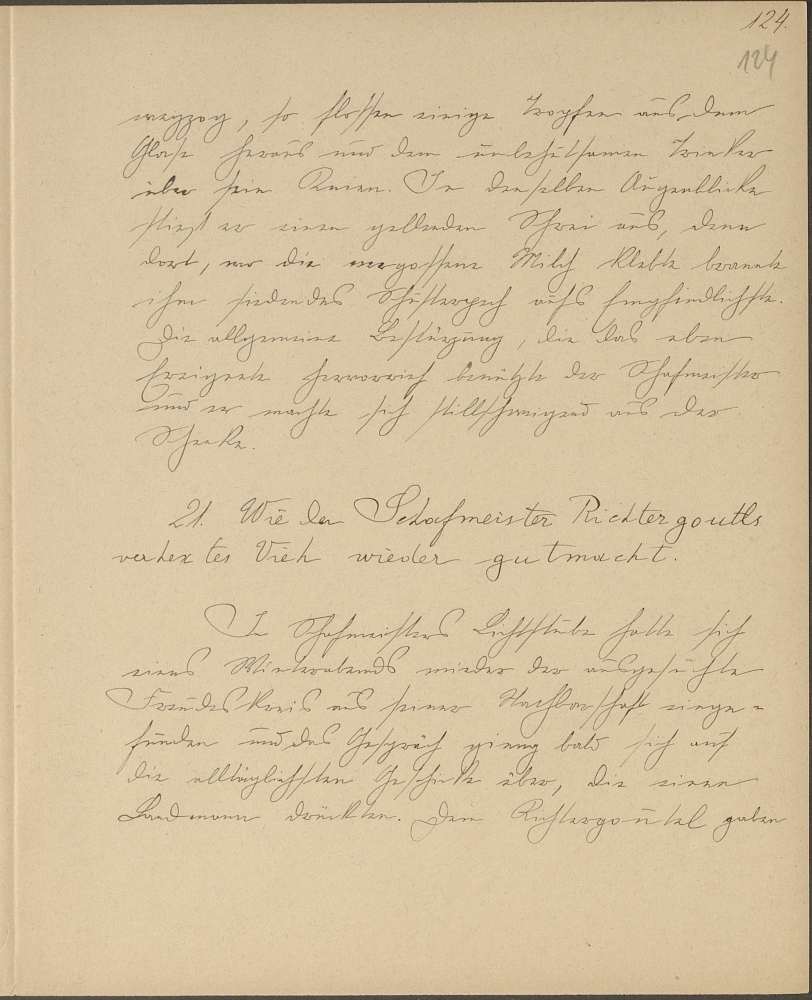 124.
124
wegzog, so flossen einige Tropfen aus dem
Glase heraus und dem unbehutsamen Trinker
über sein Knien. In denselben Augenblicke
stieß er einen gellenden Schrei aus, denn
dort, wo die vergossene Milch klebte brannte
ihm siedendes Schusterpech aufs Empfindlichste.
Die allgemeine Bestürzung, die das eben
Ereignete hervorrief benützte der Schafmeister
und er machte sich stillschweigend aus der
Schenke.
21. Wie der Schafmeister Richtergoutls
verhextes Vieh wieder gutmacht.
In Schafmeisters Lichtstube hatte sich
eines Winterabends wieder der ausgesuchte
Freundeskreis aus seiner Nachbarschaft einge-
funden und das Gespräch gieng bald sich auf
die alltäglichsten Geschicke über, die einen
Landmann drückten. Dem Richtergoutel gaben